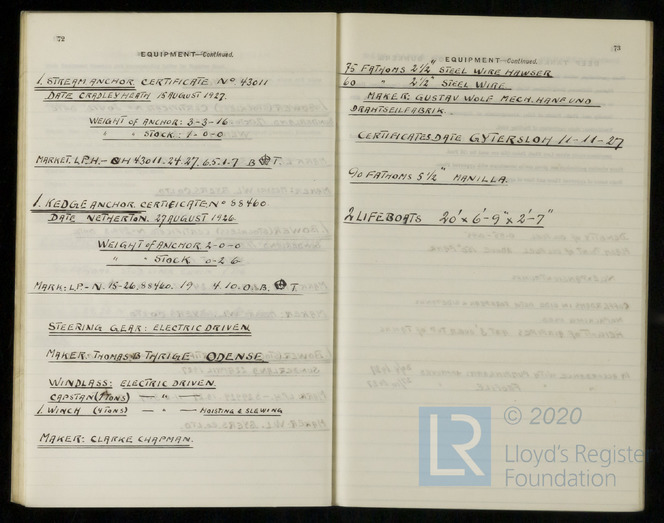 72
EQUIPMENT—Continued.
1. STREAM ANCHOR. CERTIFICATE No. 43011
DATE CRADLEY HEATH 15 AUGUST 1927.
WEIGHT OF ANCHOR: 3-3-16
" " STOCK: 1-0-0
MARKET. L.P.H.- OH 43011-24-27. 6.5.1-7 B T.
1. KEDGE ANCHOR. CERTIFICATE No 88460.
DATE NETHERTON. 27 AUGUST 1926.
WEIGHT OF ANCHOR 2-0-0
" " STOCK 0-2 6
MARK: L.P.-N. 15-26. 88460. 19 4.10.0. B. T.
STEERING GEAR: ELECTRIC DRIVEN
MAKER: THOMAS B THRIGE ODENSE
WINDLASS: ELECTRIC DRIVEN
CAPSTAN (7 TONS) — " —
1. WINCH (4 TONS) — " — HOISTING & SLEWING
MAKER: CLARKE CHAPMAN.
73
EQUIPMENT—Continued.
75 FATHOMS 2½" STEEL WIRE HAWSER
60 " 2½" STEEL WIRE.
MAKER GUSTAV WOLF MECH. HANF UND
DRAHTSEILFABRIK.
CERTIFICATES DATE GYTERSLOH 11-11-27
90 FATHOMS 5½" MANILLA.
2 LIFEBOATS 20' x 6'-9" x 2'-7"
LR
© 2020
Lloyd's Register
Foundation